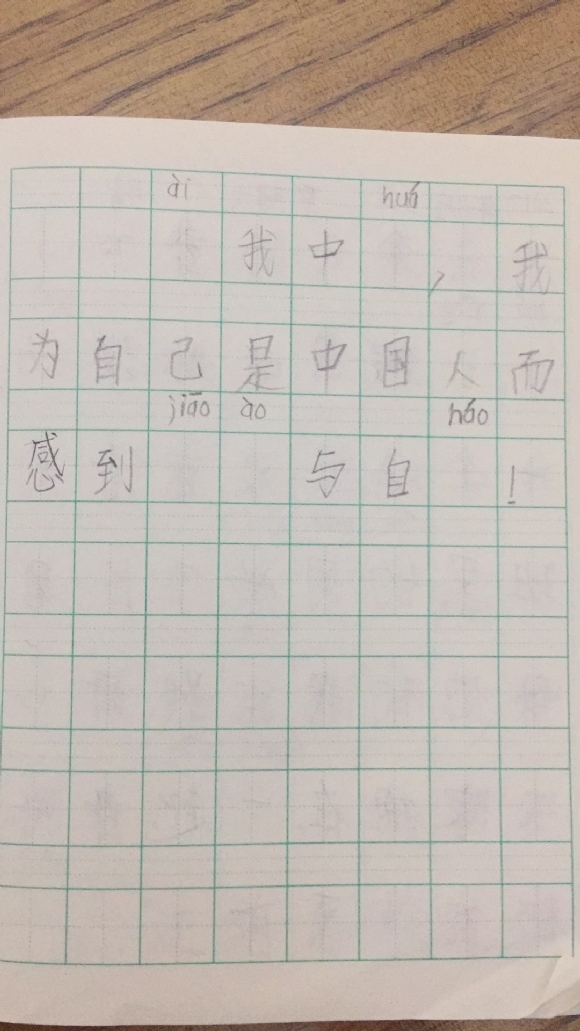 ài huá
我中,我
为自己是中国人而
jiāo ào háo
感到与自!